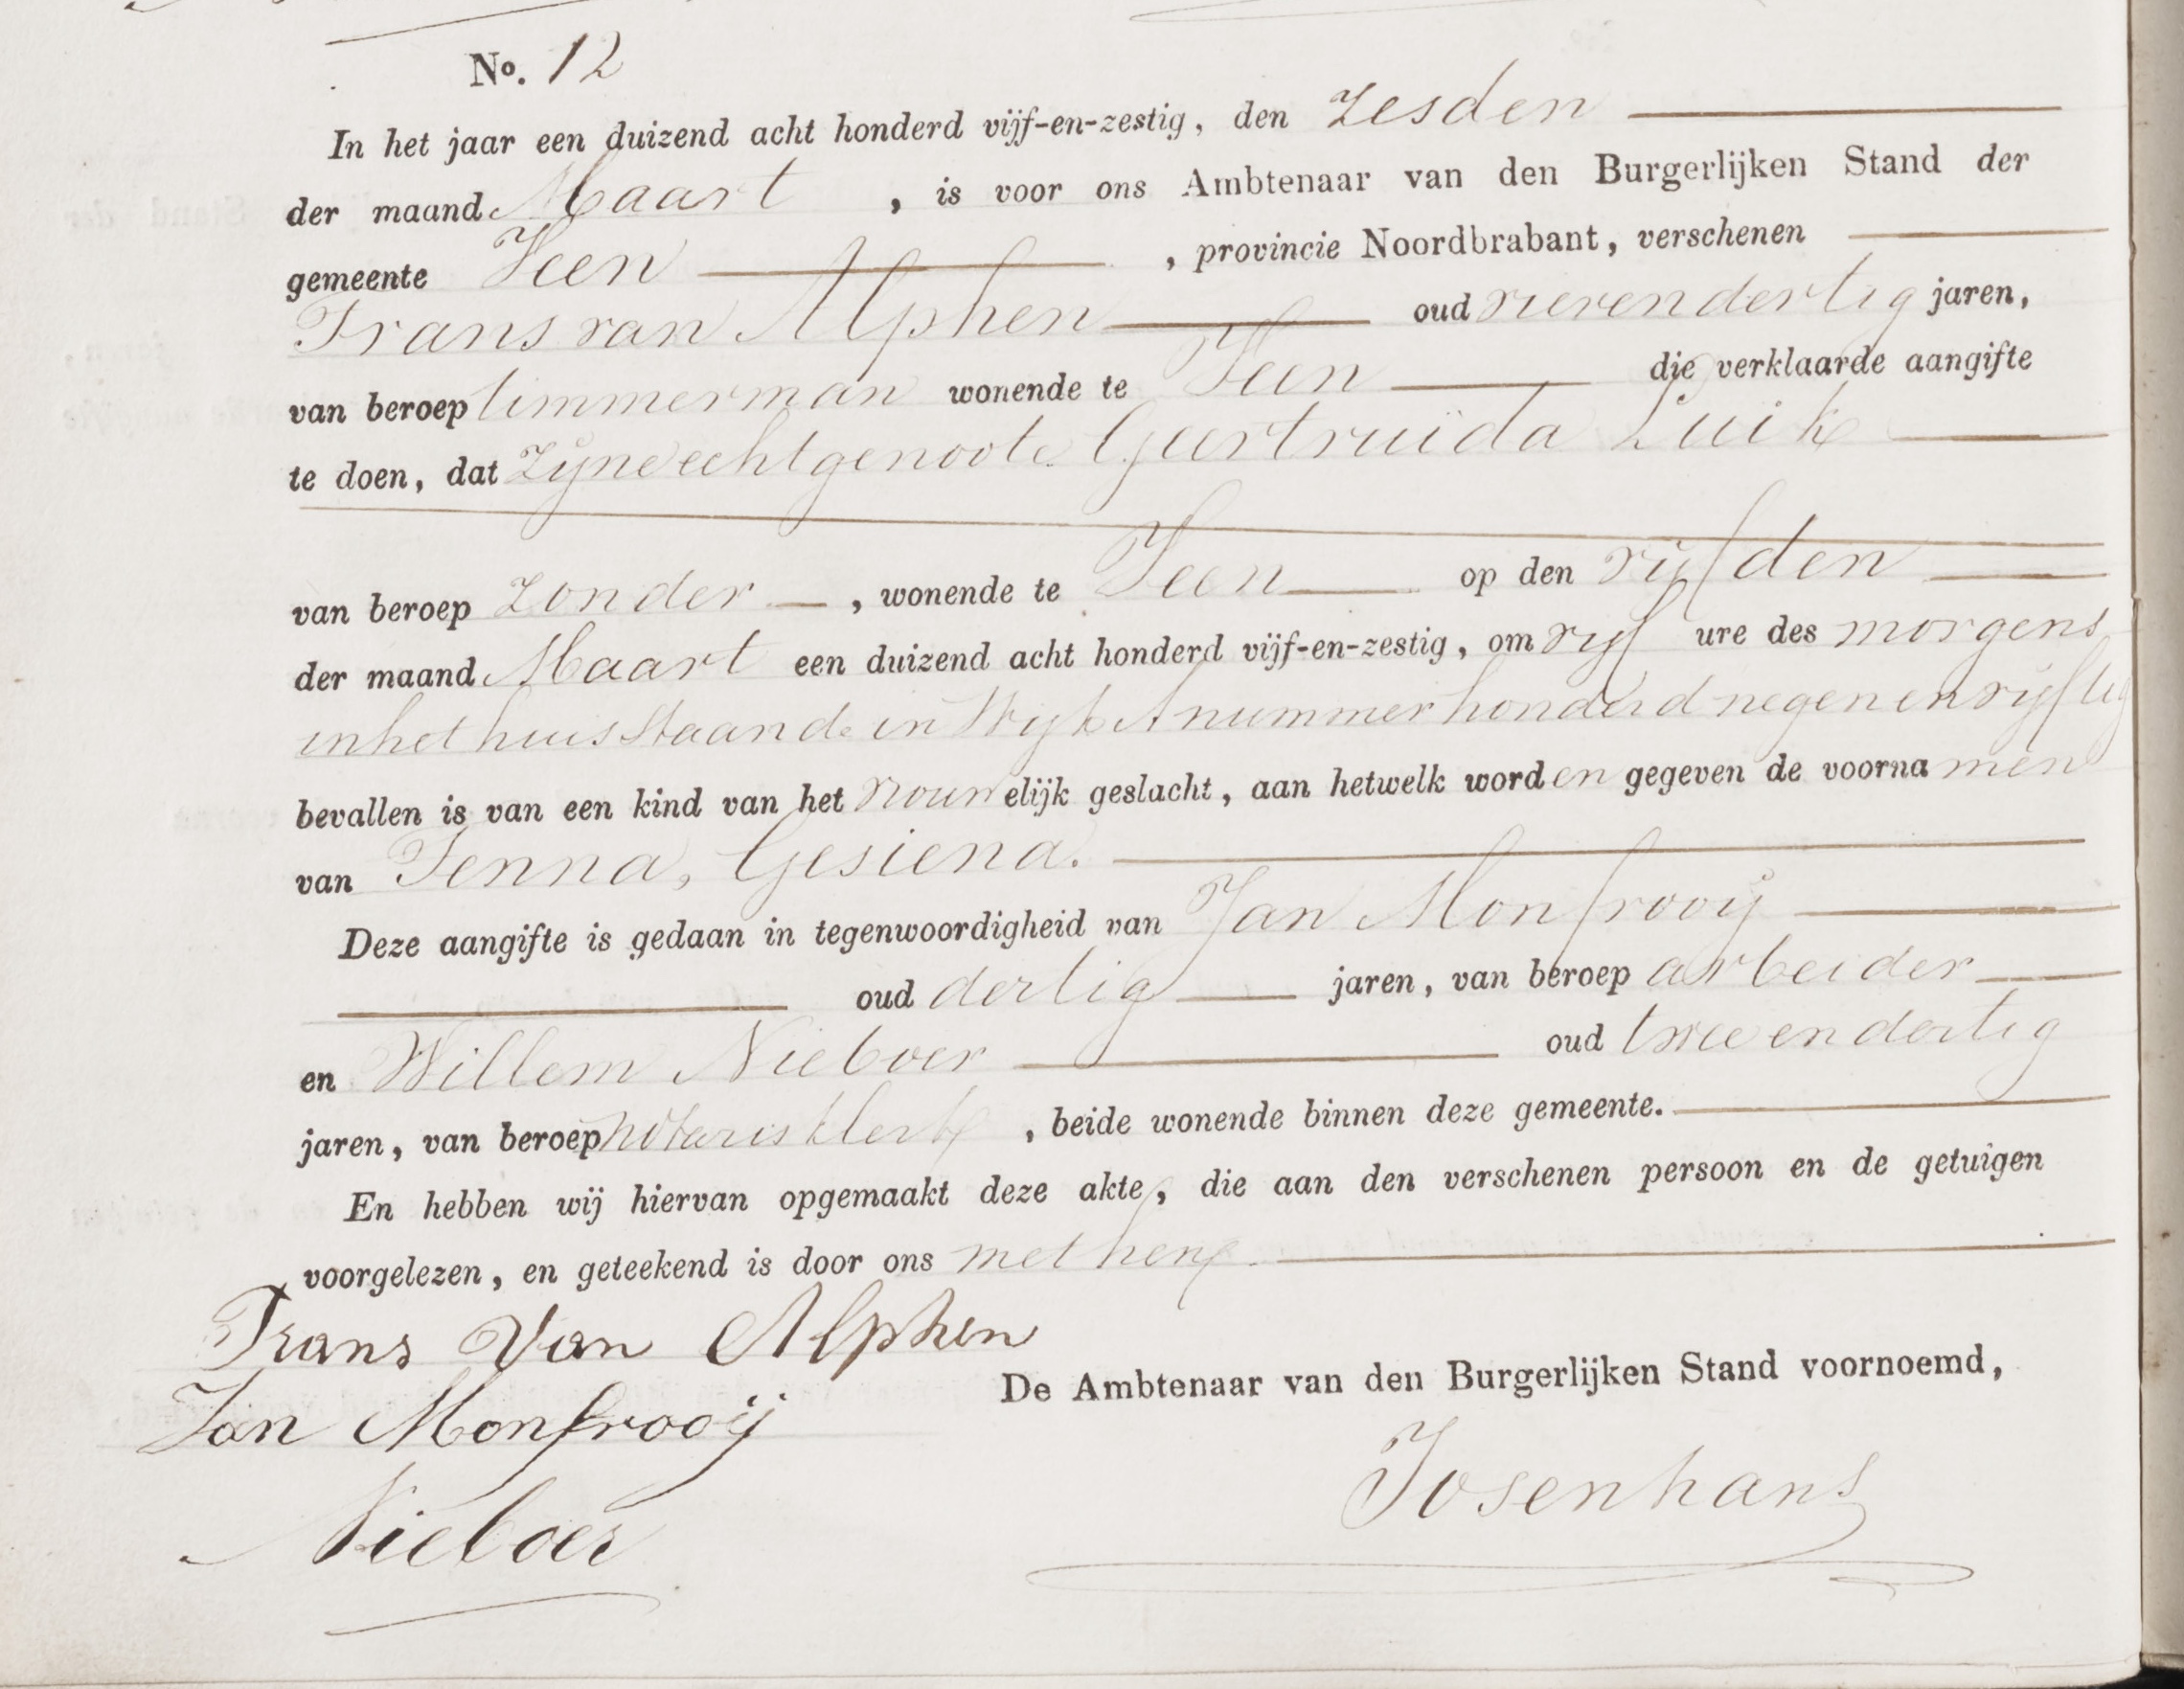 No. 12
In het jaar een duizend acht honderd vijf-en-zestig, den zesden
der maand Maart, is voor ons Ambtenaar van den Burgerlijken Stand der
gemeente Veen, provincie Noordbrabant, verschenen
Frans van Alphen oud vierendertig jaren,
van beroep timmerman wonende te Veen die verklaarde aangifte
te doen, dat zijne echtgenoote Geertruïda Luik
van beroep zonder, wonende te Veen op den vijfden
der maand Maart een duizend acht honderd vijf-en-zestig, om vijf ure des morgens
in het huis staande in Wijk A nummer honderd negenenvijftig
bevallen is van een kind van het vrouwelijk geslacht, aan hetwelk worden gegeven de voornamen
van Jenna, Gesiena.
Deze aangifte is gedaan in tegenwoordigheid van Jan Monfrooij
oud dertig jaren, van beroep arbeider
en Willem Nieboer oud tweeendertig
jaren, van beroep notarisklerk, beide wonende binnen deze gemeente.
En hebben wij hiervan opgemaakt deze akte, die aan den verschenen persoon en de getuigen
voorgelezen, en geteekend is door ons met hen.
Frans Van Alphen
De Ambtenaar van den Burgerlijken Stand voornoemd,
Jan Monfrooij
Josenhans
Nieboer